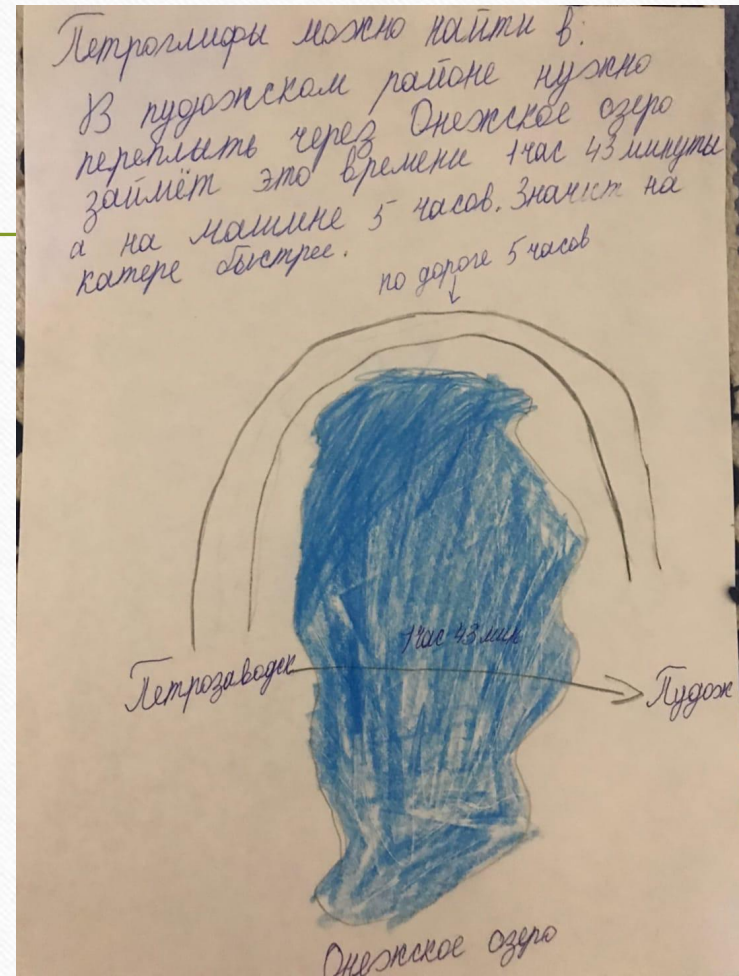 Петроглифы можно найти в:
В пудожском районе нужно
переплыть через Онежское озеро
займёт это времени 1час 43 минуты
а на машине 5 часов. Значит на
катере быстрее.
по дороге 5 часов
1час 43 мин
Петрозаводск
Пудож
Онежское озеро